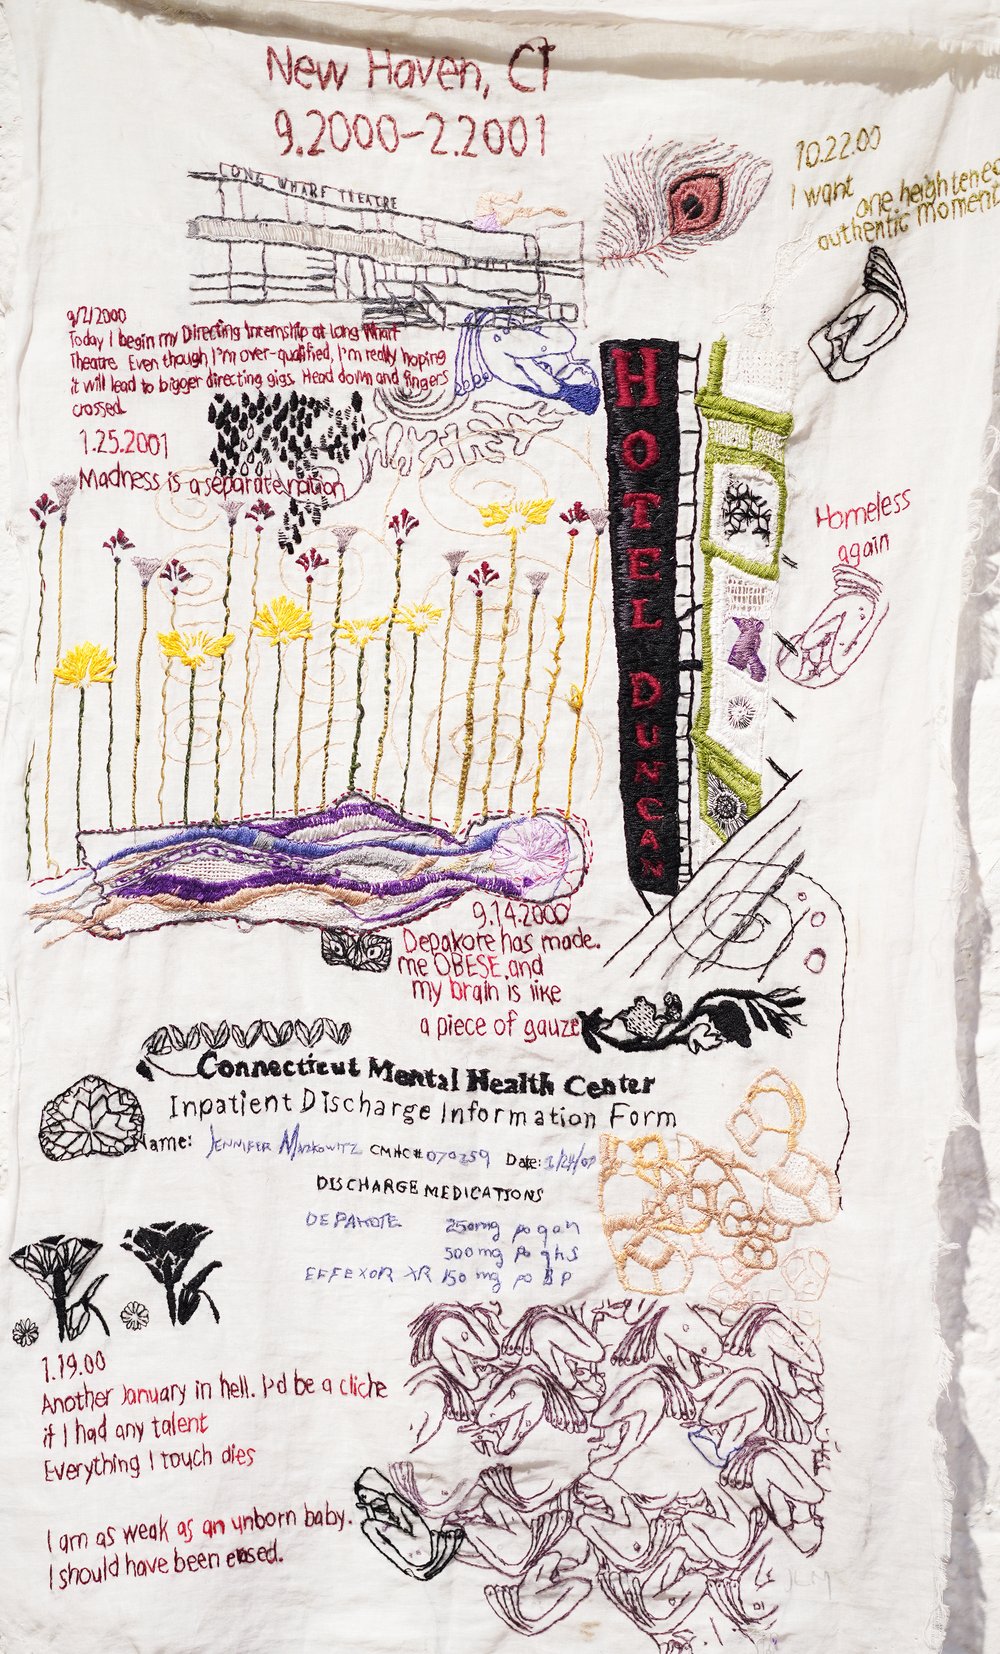 New Haven, CT
9.2000-2.2001
LONG WHARF THEATRE
10.22.00
I want
one heightened
authentic moment
9/2/2000
Today I begin my Directing Internship at Long Wharf
Theatre. Even though I'm over-qualified, I'm really hoping
it will lead to bigger directing gigs. Head down and fingers
crossed.
1.25.2001
Madness is a separate nation
HOTEL DUNCAN
Homeless
again
9.14.2000
Depakote has made
me OBESE, and
my brain is like
a piece of gauze
Connecticut Mental Health Center
Inpatient Discharge Information Form
Name: JENNIFER MARKOWITZ CMHC# 070259 Date:
DISCHARGE MEDICATIONS
DEPAKOTE 250mg po qan
500mg po qhs
EFFEXOR XR 150 mg po
1.19.00
Another January in hell. I'd be a cliche
if I had any talent
Everything I touch dies
I am as weak as an unborn baby.
I should have been erased.
JLM